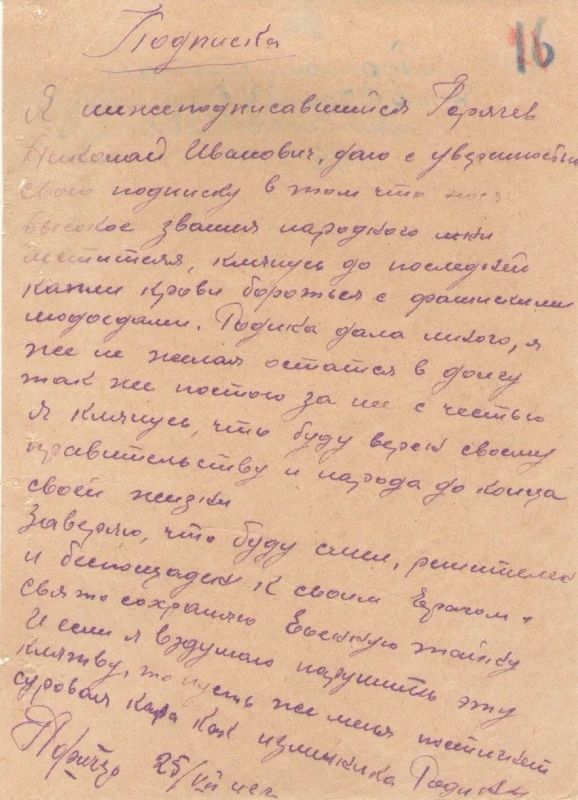 Подписка
16
Я нижеподписавшийся Горячев
Николай Иванович, даю с уверенностью
свою подписку в том что
высокое звания народного
мстителя, клянусь до последней
капли крови бороться с фашискими
людоедами. Родина дала много, я
же не желая остатся в долгу
так же постою за нее с честью
Я клянусь, что буду верен своему
правительству и народа до конца
своей жизни
Заверяю, что буду смел, решителен
и беспощаден к своим врагом,
свято сохраняю Военную тайну
И если я вздумаю нарушить эту
клятву, то пусть же меня постигнет
суровая кара как изменника Родины
25/VII